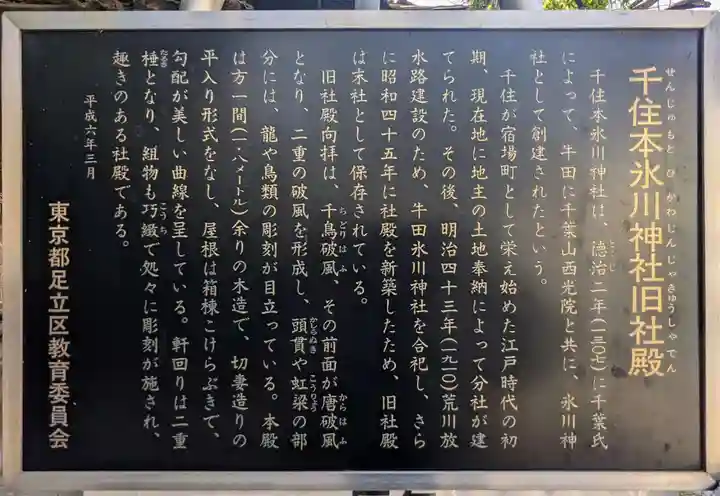 千住本氷川神社旧社殿
せんじゅもと ひ かわじんじゃきゅうしゃでん
千住本氷川神社は、徳治二年(一三〇七)に千葉氏
とくじ
によって、牛田に千葉山西光院と共に、氷川神
社として創建されたという。
千住が宿場町として栄え始めた江戸時代の初
期、現在地に地主の土地奉納によって分社が建
てられた。その後、明治四十三年(一九一〇)荒川放
水路建設のため、牛田氷川神社を合祀し、さら
に昭和四十五年に社殿を新築したため、旧社殿
は末社として保存されている。
旧社殿向拝は、千鳥破風、その前面が唐破風
ちどりはふ からはふ
となり、二重の破風を形成し、頭貫や虹梁の部
かしらぬき こうりょう
分には、龍や鳥類の彫刻が目立っている。本殿
は方一間(一・八メートル)余りの木造で、切妻造りの
平入り形式をなし、屋根は箱棟こけらぶきで、
勾配が美しい曲線を呈している。軒回りは二重
棰となり、組物も巧緻で処々に彫刻が施され、
たるき こうち
趣きのある社殿である。
平成六年三月
東京都足立区教育委員会